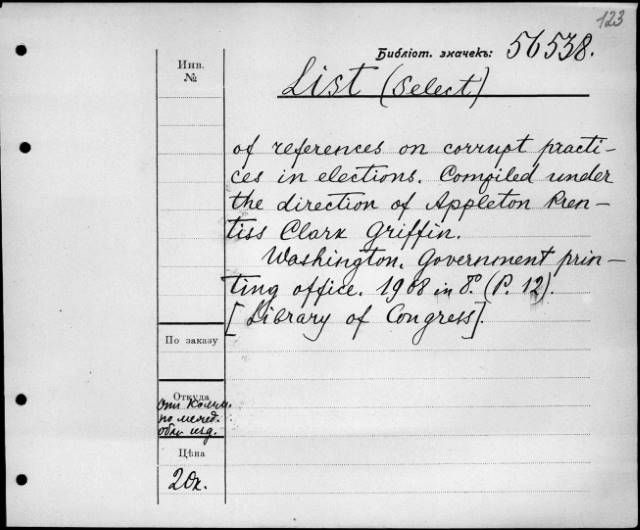 123
Библіот. значекъ: 56538.
Инв.
№
List (select)
of references on corrupt practi-
ces in elections. Compiled under
the direction of Appleton Pren-
tiss Clark Griffin.
Washington. Government prin-
ting office. 1908 in 8º. (P. 12).
[Library of Congress].
По заказу
Откуда
по межд.
изд.
Цѣна
20к.